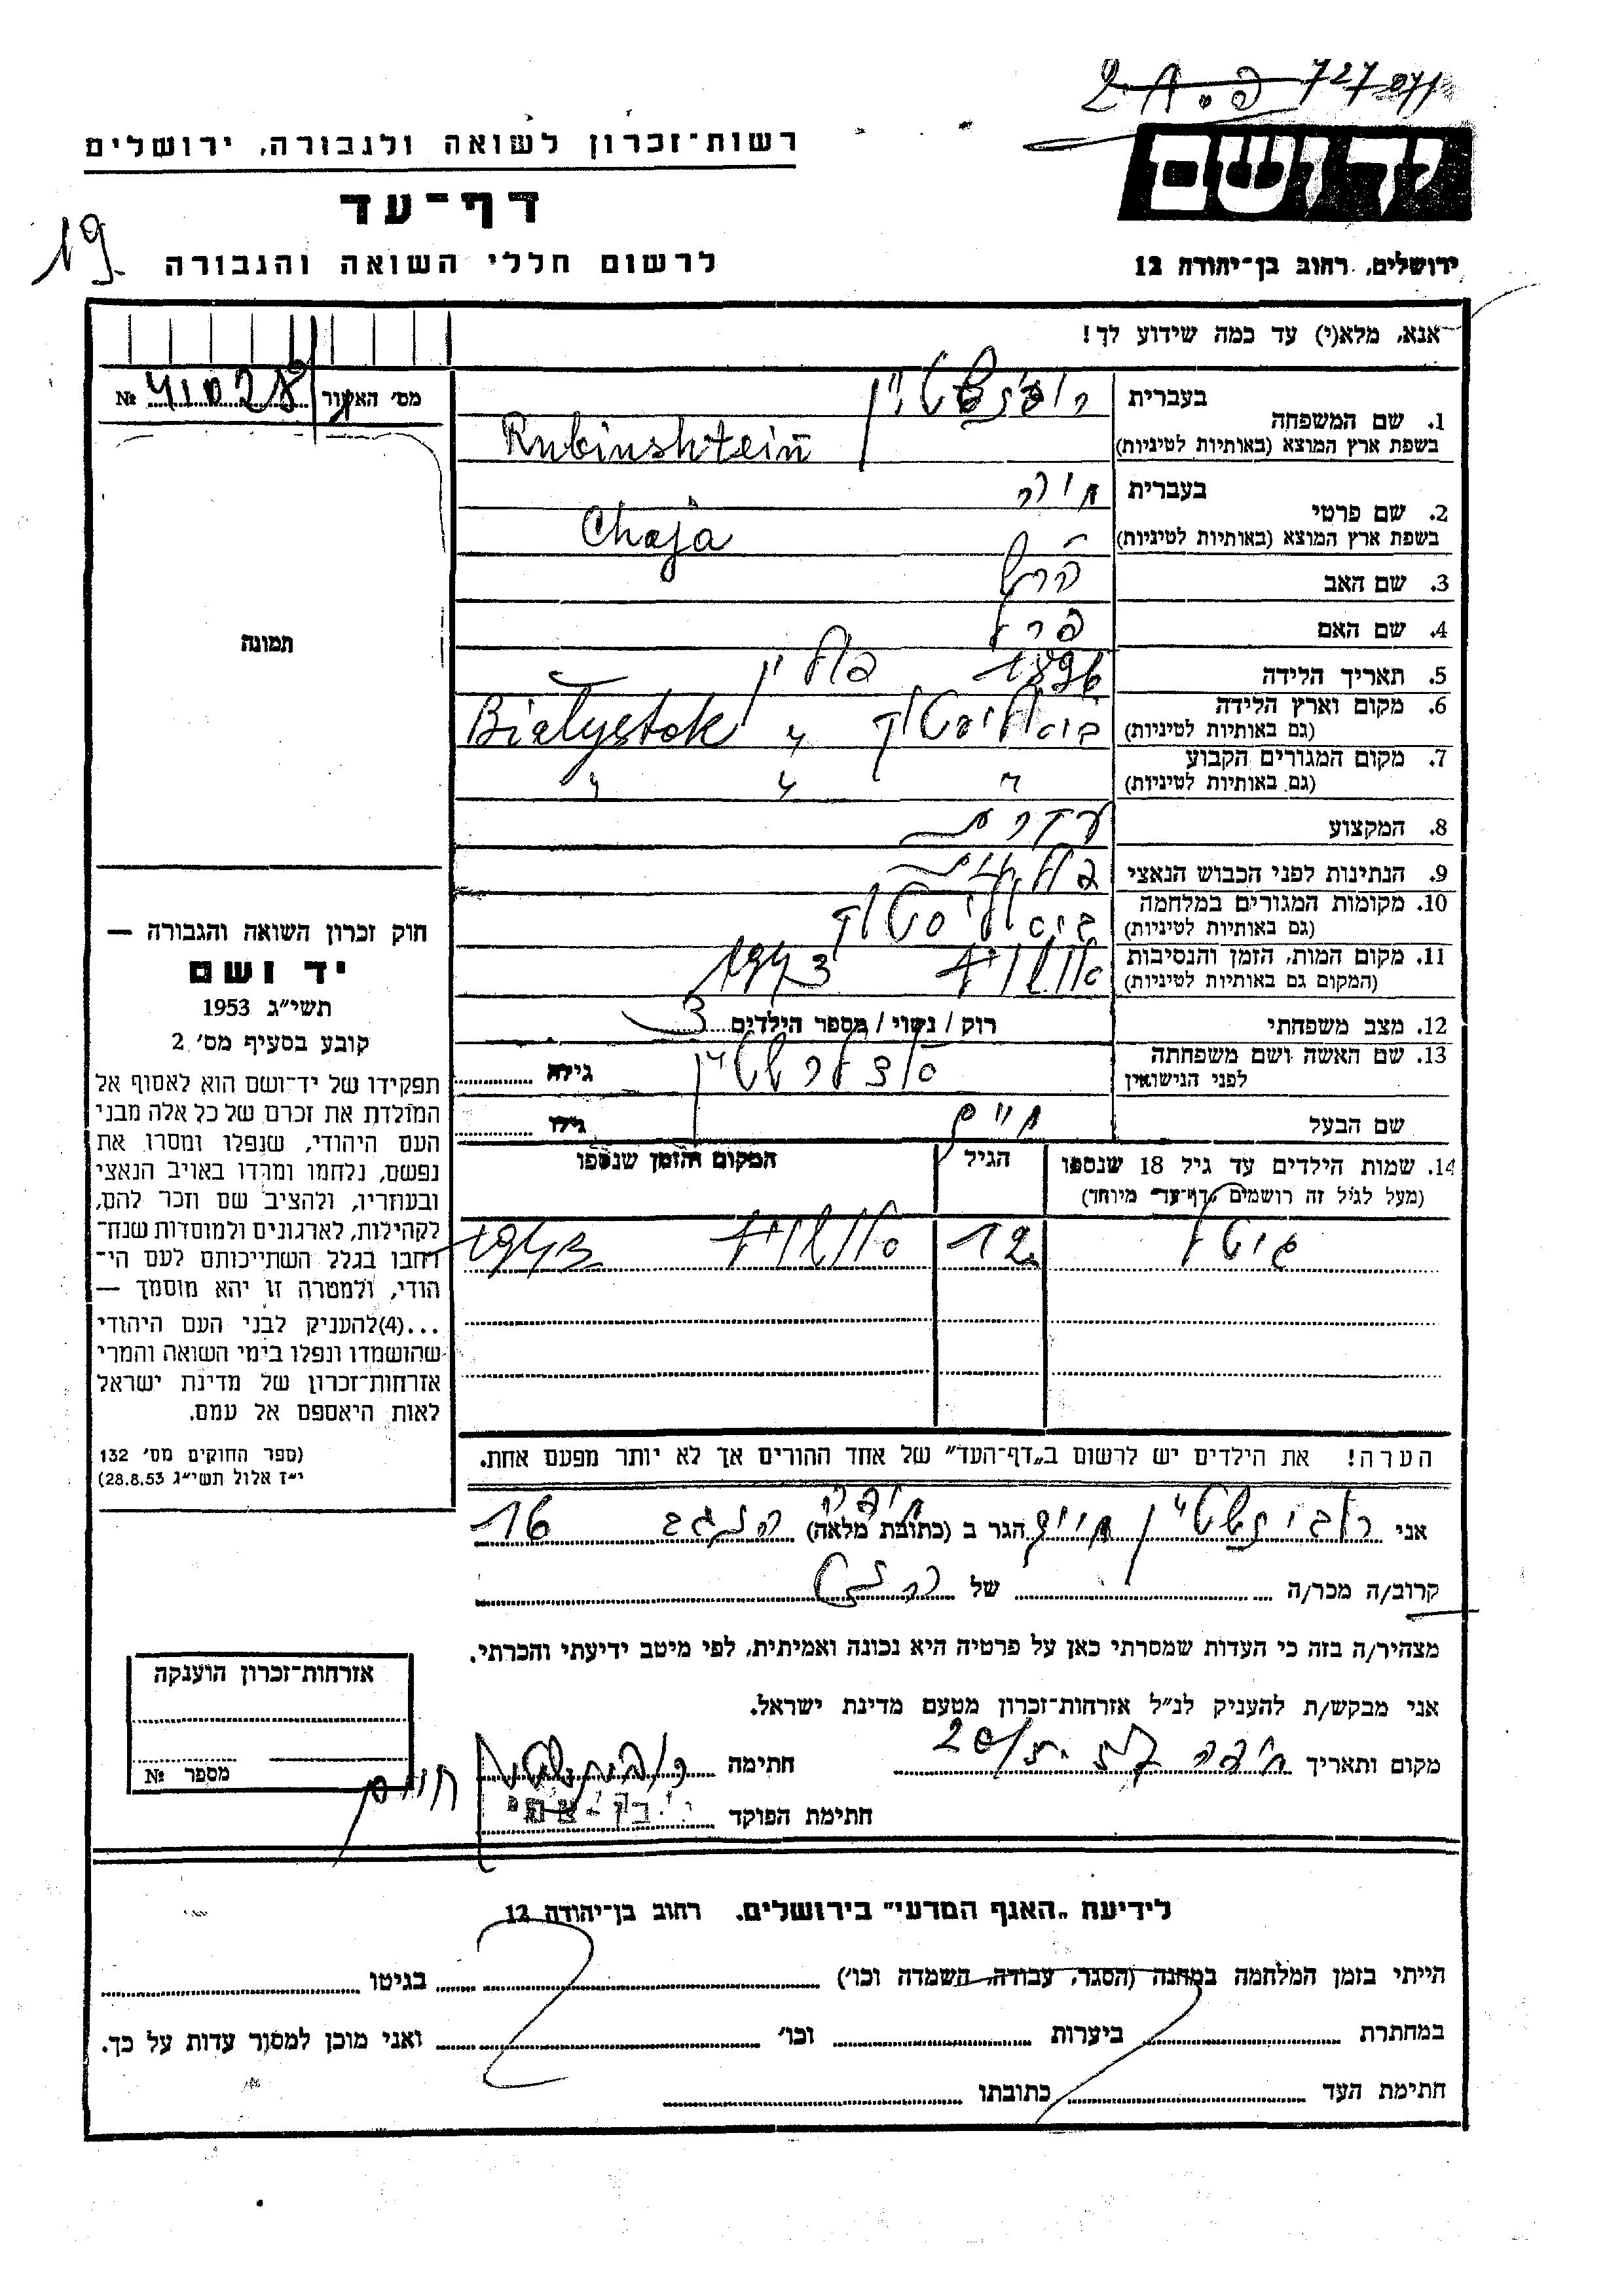 727
071
יד ושם
ירושלים, רחוב בן־יהודה 12
רשות־זכרון לשואה ולגבורה, ירושלים
דף־עד
לרשום חללי השואה והגבורה
19
אנא, מלא(י) עד כמה שידוע לך!
מס׳ האשור № 41028
תמונה
1. שם המשפחה בעברית רובינשטיין
בשפת ארץ המוצא (באותיות לטיניות) Rubinshtein
2. שם פרטי בעברית חיה
בשפת ארץ המוצא (באותיות לטיניות) Chaja
3. שם האב הרש
4. שם האם פרל
5. תאריך הלידה 1896
6. מקום וארץ הלידה ביאליסטוק פולין Białystok
(גם באותיות לטיניות)
7. מקום המגורים הקבוע " " "
(גם באותיות לטיניות)
8. המקצוע עקרת
9. הנתינות לפני הכבוש הנאצי פולנית
10. מקומות המגורים במלחמה ביאליסטוק
(גם באותיות לטיניות)
11. מקום המות, הזמן והנסיבות 1943
(המקום גם באותיות לטיניות)
12. מצב משפחתי רוק / נשוי / מספר הילדים 3
13. שם האשה ושם משפחתה לפני הנישואין גילה
שם הבעל חיים גילו
14. שמות הילדים עד גיל 18 שנספו הגיל המקום והזמן שנספו
(מעל לגיל זה רושמים „דף־עד״ מיוחד)
גיטל 12 1943
הערה! את הילדים יש לרשום ב„דף־העד״ של אחד ההורים אך לא יותר מפעם אחת.
חוק זכרון השואה והגבורה —
יד ושם
תשי״ג 1953
קובע בסעיף מס׳ 2
תפקידו של יד־ושם הוא לאסוף אל
המולדת את זכרם של כל אלה מבני
העם היהודי, שנפלו ומסרו את
נפשם, נלחמו ומרדו באויב הנאצי
ובעוזריו, ולהציב שם וזכר להם,
לקהילות, לארגונים ולמוסדות שנח־
רבו בגלל השתייכותם לעם הי־
הודי, ולמטרה זו יהא מוסמך —
...(4)להעניק לבני העם היהודי
שהושמדו ונפלו בימי השואה והמרי
אזרחות־זכרון של מדינת ישראל
לאות היאספם אל עמם.
(ספר החוקים מס׳ 132
י״ז אלול תשי״ג 28.8.53)
אני רובינשטיין חיים הגר ב (כתובת מלאה) חיפה הנגב 16
קרוב/ה מכר/ה של
מצהיר/ה בזה כי העדות שמסרתי כאן על פרטיה היא נכונה ואמיתית, לפי מיטב ידיעתי והכרתי.
אני מבקש/ת להעניק לנ״ל אזרחות־זכרון מטעם מדינת ישראל.
מקום ותאריך חיפה חתימה רובינשטיין חיים
חתימת הפוקד
אזרחות־זכרון הוענקה
מספר №
לידיעת „האגף המדעי״ בירושלים, רחוב בן־יהודה 12
הייתי בזמן המלחמה במחנה (הסגר, עבודה, השמדה וכו׳) בגיטו
במחתרת ביערות וכו׳ ואני מוכן למסור עדות על כך.
חתימת העד כתובתו